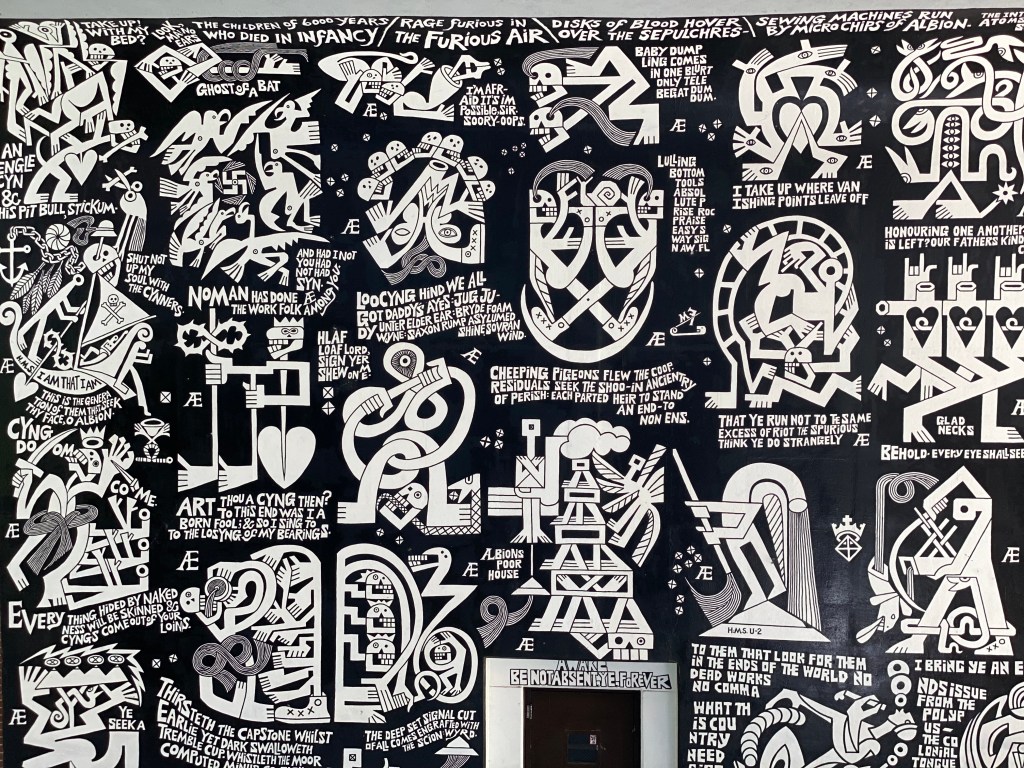 TAKE UP!
WITH MY
BED?
THE CHILDREN OF 6000 YEARS /
WHO DIED IN INFANCY /
RAGE FURIOUS IN \
THE FURIOUS AIR \
DISKS OF BLOOD HOVER
OVER THE SEPULCHRES-
SEWING MACHINES RUN
BY MICROCHIPS OF ALBION.
THE INT
ATOMS
GHOST OF A BAT
I'M AFR-
AID IT'S IM
POSSIBLE, SIR.
SOORY-OOPS.
Æ
BABY DUMP
LING COMES
IN ONE BLURT
ONLY TELE
BEGAT DUM
DUM.
Æ
Æ
I TAKE UP WHERE VAN
ISHING POINTS LEAVE OFF
AN
ENGLE
CYN
&
HIS PIT BULL, STICKUM.
SHUT NOT
UP MY
SOUL WITH
THE CYNNERS.
H.M.S.
I AM THAT I AM
Æ
THIS IS THE GENERA
TION OF THEM THAT SEEK
THY FACE, O ALBION
AND HAD I NOT
YOU HAD
NOT HAD
SYN.
Æ
NOMAN HAS DONE
THE WORK FOLK AMONG YOU
Æ
LOOCYNG HIND WE ALL
GOT DADDYS AYES-JUG JU-
DY UNTER ELDER EAR-BRYDE FOAM
WYNE-SAXON RUMB ASYLUMED
SHINE SOVRAN
WIND.
Æ
LULLING
BOTTOM
TOOLS
ABSOL
LUTE P
RISE ROC
PRAISE
EASY S
WAY SIG
N AW FL
HONOURING ONE ANOTHER
IS LEFT? OUR FATHERS KIND
HLAF
LOAF LORD,
SIGN YER
SHEW ON'E
Æ
CHEEPING PIGEONS FLEW THE COOP
RESIDUALS SEEK THE SHOO-IN ANCIENTRY
OF PERISH: EACH PARTED HEIR TO STAND
AN END-TO
NON ENS.
THAT YE RUN NOT TO THE SAME
EXCESS OF RIOT THE SPURIOUS
THINK YE DO STRANGELY Æ
GLAD
NECKS
BEHOLD-EVERY EYE SHALL SEE
CYNG
DO
OM
COME
Æ
ART THOU A CYNG THEN?
TO THIS END WAS I A
BORN FOOL: & SO I SING TO
TO THE LOSYNG OF MY BEARINGS.
EVERY THING HIDED BY NAKED
NESS WILL BE SKINNED &
CYNGS COME OUT OF YOUR
LOINS.
Æ
ÆLBIONS
POOR
HOUSE
Æ
Æ
H.M.S U-2
Æ
Æ
YE
SEEK A
THIRSTETH THE CAPSTONE WHILST
EARLIE YET DARK SWALLOWETH
TREMBLE CUP WHISTLETH THE MOOR
COMPUTED
THE DEEP SET SIGNAL CUT
OF ALL COMES ENGRAFTED WITH
THE SCION WYRD.
AWAKE
BE NOT ABSENT YE FOREVER
TO THEM THAT LOOK FOR THEM
IN THE ENDS OF THE WORLD NO
DEAD WORKS
NO COMMA
WHAT TH
IS COU
NTRY
NEED
I BRING YE AN E
NDS ISSUE
FROM THE
POLYP
US-
THE CO
LONIAL
TONGUE